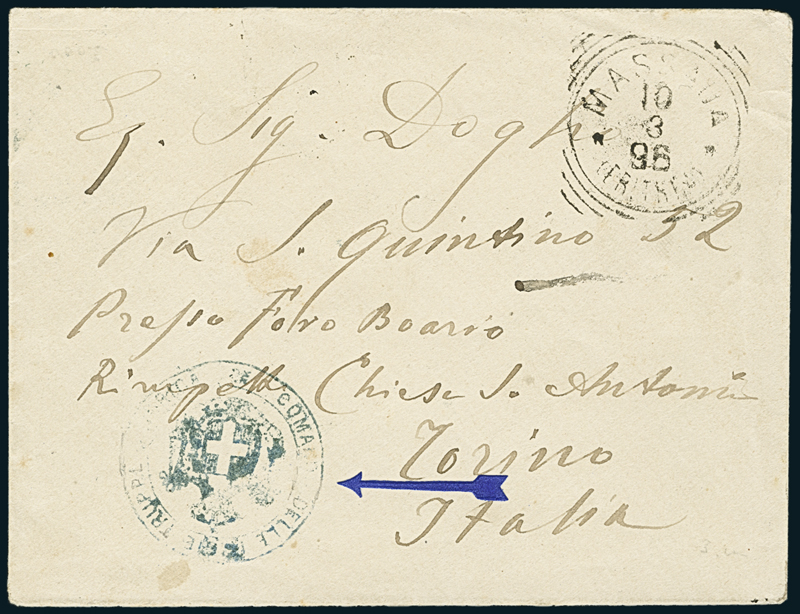 MASSAUA
10
3
96
(ERITREA)
E. Sig. Dogho
Via S. Quintino 32
Presso Foro Boario
Rimpetto Chiesa S. Antonio
Torino
Italia
COMANDO DELLE TRUPPE